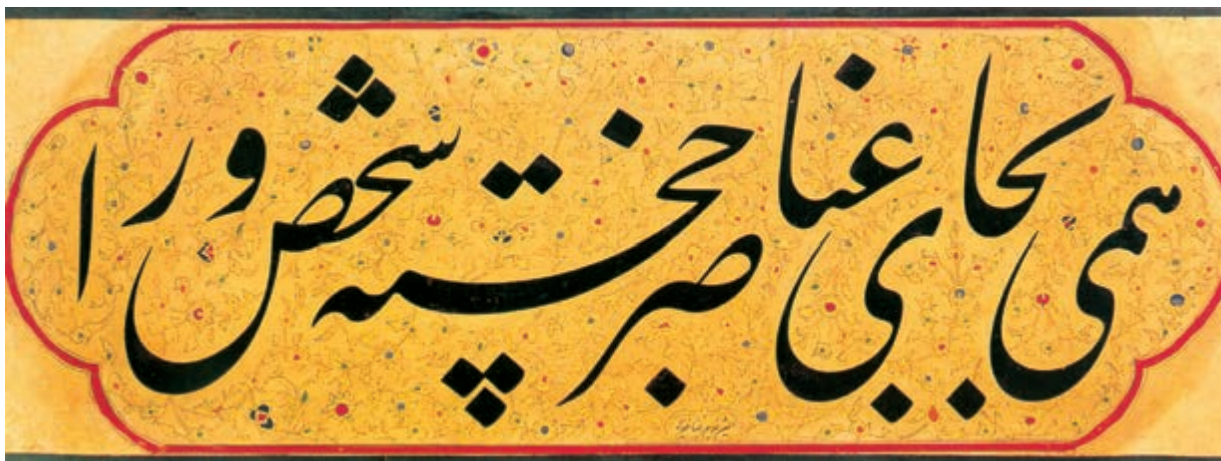 همی بجای عناصر خجسته شخص ورا